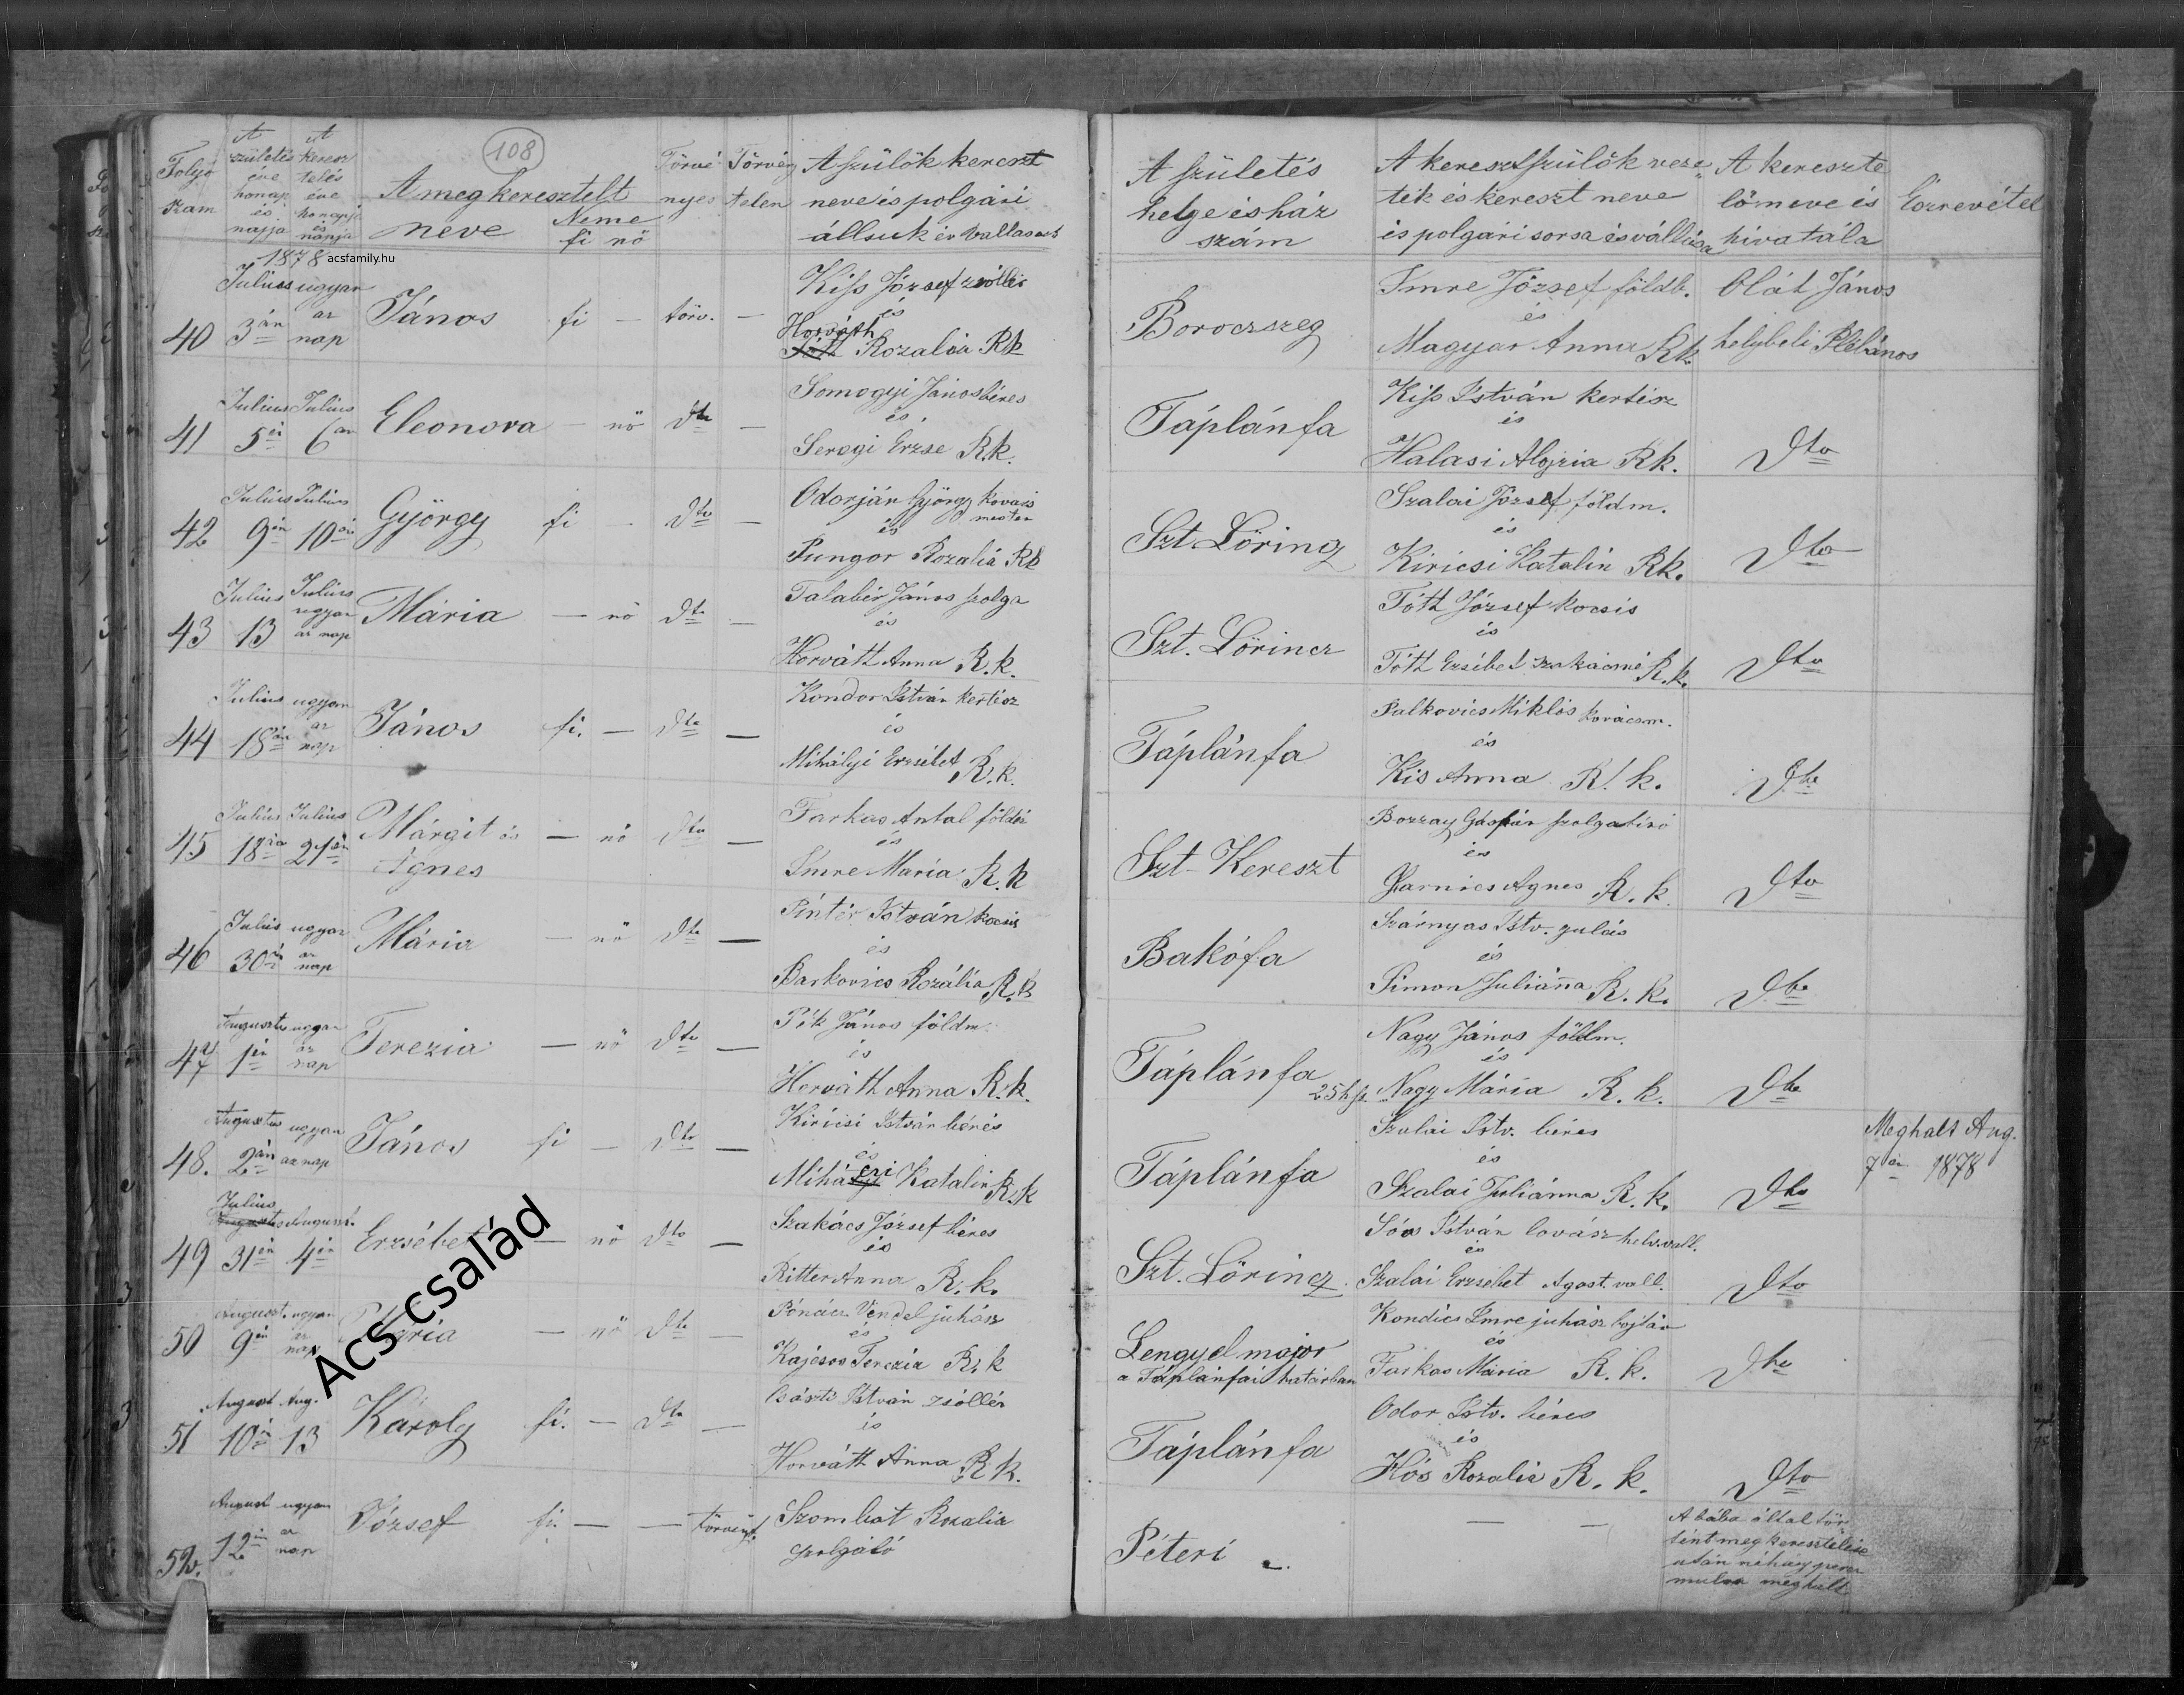 108
Folyó szám
A születés éve honap és napja
A keresz telés éve honapja és napja
A megkeresztelt neve
Neme
fi nö
Törvé nyes
Törvény telen
A szülök kereszt neve és polgári állsuk és vallasuk
A születés helye és ház szám
A keresztszülök veze ték és kereszt neve és polgári sorsa és vallása
A kereszte lö neve és hivatála
Észrevétel
1878 acsfamily.hu
40 Julius 3án ugyan az nap János fi — törv. — Kiss József zsöllér és Horváth Rozalia Rk Boroczszeg Imre József földb. és Magyar Anna Rk. Olát János helybeli Plébános
41 Julius 5én Julius 6an Eleonora — nö dto — Somogyi János béres és Seregi Erzse R.k. Táplánfa Kiss István kertész és Halasi Alojzia Rk. Dto
42 Julius 9én Julius 10én György fi — dto — Odorján György kovács mester és Pungor Rozalia Rk Szt Löring Szalai József földm. és Kiricsi Katalin Rk. Dto
43 Julius 13 Julius ugyan az nap Mária — nö dto — Talabér János szolga és Horváth Anna R.k. Szt. Lörincz Tóth József kocsis és Tóth Erzsébet szakácsné R.k. Dto
44 Julius 18án ugyan az nap János fi. — dto — Kondor István kertész és Mihályi Erzsébet R.k. Táplánfa Palkovics Miklós kovácsm. és Kis Anna R. k. Dto
45 Julius 18án Julius 21én Márgit és Agnes — nö dto — Farkas Antal földm és Imre Maria R.k Szt-Kereszt Bozzay Gáspár szolgabiró és Agnes R.k. Dto
46 Julius 30án ugyan az nap Mária — nö dto — Pintér István kocsis és Barkovics Rozália R.k Bakófa Szárnyas Istv. gulás és Simon Juliánna R.k. Dto
47 Augusztus 1én ugyan az nap Terezia — nö dto — Pék János földm. és Horváth Anna R.k. Táplánfa 25 h sz. Nagy János földm. és Nagy Mária R.k. Dto
48. Augusztus 2án ugyan az nap János fi — dto — Kiricsi István béres és Miháczi Katalin R.k Táplánfa Szalai Istv. béres és Szalai Juliánna R.k. Dto Meghalt Aug. 7én 1878
49 Julius 31én August. 4én Erzsébet — nö dto — Szakács József béres és Ritter Anna R.k. Szt. Lörincz Sóos István lovász helv. vall. és Szalai Erzsébet Agost. vall. Dto
50 August. 9én ugyan az nap Mária — nö dto — Vendel juhász és Kajcsos Terezia R.k Lengyel major a Táplánfai határban Kondics Imre juhász bojtár és Farkas Mária R.k. Dto
51 August 10én Aug. 13 Károly fi. — dto — Básti István zsöllér és Horváth Anna R.k. Táplánfa Odor Istv. béres és Hós Rozalia R.k. Dto
52. August 12én ugyan a nap József fi. — — törvényt. Szombat Rozalia szolgáló Péteri — — A bába által tör tént megkeresztelése után néhány percz mulva meghalt
Acs család